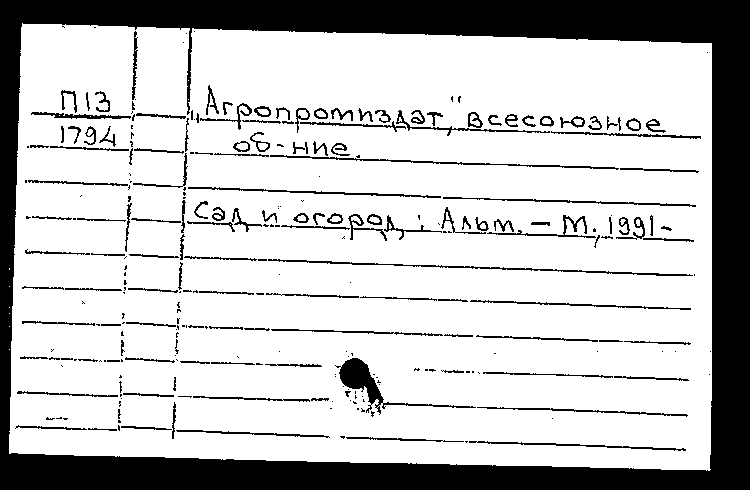 П13
1794
„Агропромиздат," всесоюзное
об-ние.
Сад и огород : Альм. – М., 1991-